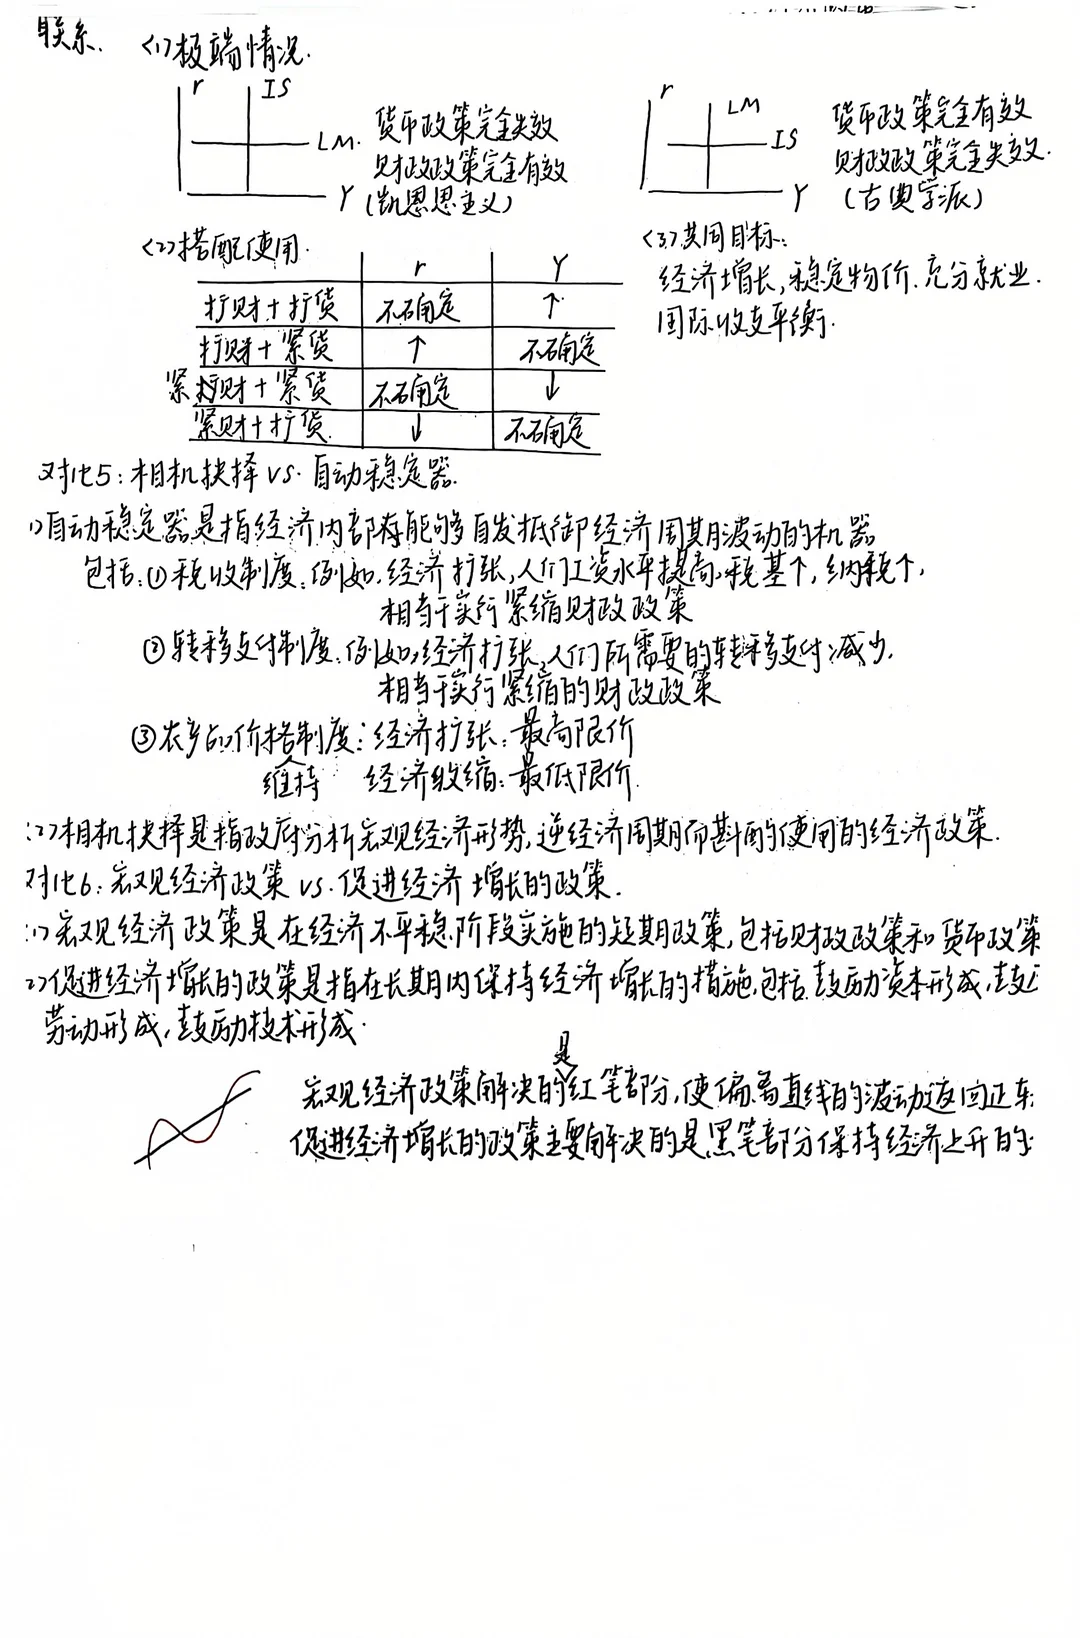 联系. <1>极端情况.
r IS
LM. 货币政策完全失效
财政政策完全有效
Y (凯恩思主义)
r LM
IS 货币政策完全有效
财政政策完全失效.
Y (古典学派)
<2>搭配使用.
r Y
扩财+扩货 不确定 ↑
扩财+紧货 ↑ 不确定
紧财+紧货 不确定 ↓
紧财+扩货 ↓ 不确定
<3>共同目标:
经济增长,稳定物价.充分就业.
国际收支平衡.
对比5:相机抉择 vs. 自动稳定器.
1)自动稳定器是指经济内部存能够自发抵御经济周期波动的机器
包括:①税收制度:例如.经济扩张,人们工资水平提高,税基↑,纳税↑,
相当于实行紧缩财政政策
②转移支付制度.例如,经济扩张,人们所需要的转移支付减少.
相当于实行紧缩的财政政策
③农产品价格制度:经济扩张:最高限价
维持 经济收缩:最低限价.
(2)相机抉择是指政府分析宏观经济形势,逆经济周期而斟酌使用的经济政策.
对比6:宏观经济政策 vs.促进经济增长的政策.
(1)宏观经济政策是在经济不平稳阶段实施的短期政策,包括财政政策和货币政策
2)促进经济增长的政策是指在长期内保持经济增长的措施,包括.鼓励资本形成,鼓
劳动形成,鼓励技术形成.
宏观经济政策解决的是红笔部分,使偏离直线的波动返回正
促进经济增长的政策主要解决的是黑笔部分保持经济上升的